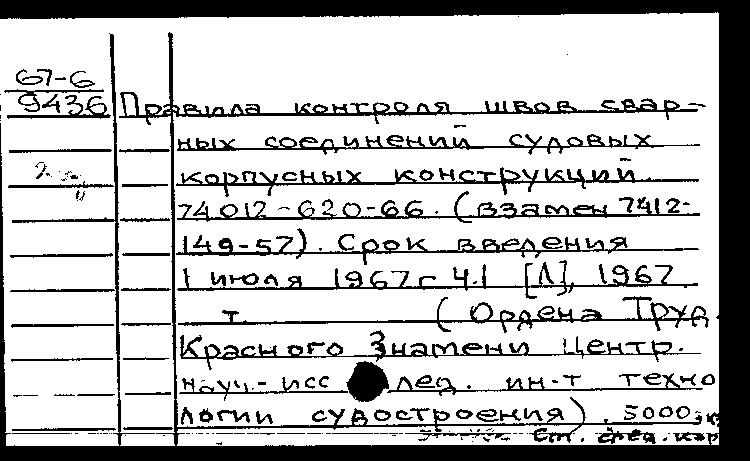 67-6
9436 Правила контроля швов свар-
ных соединений судовых
корпусных конструкций.
74012-620-66. (взамен 7412-
149-57). Срок введения
1 июля 1967 г Ч.1 [Л], 1967.
т. (Ордена Труд.
Красного Знамени Центр.
науч.-исс лед. ин-т техно
логии судостроения). 5000 эк
См. след. кар